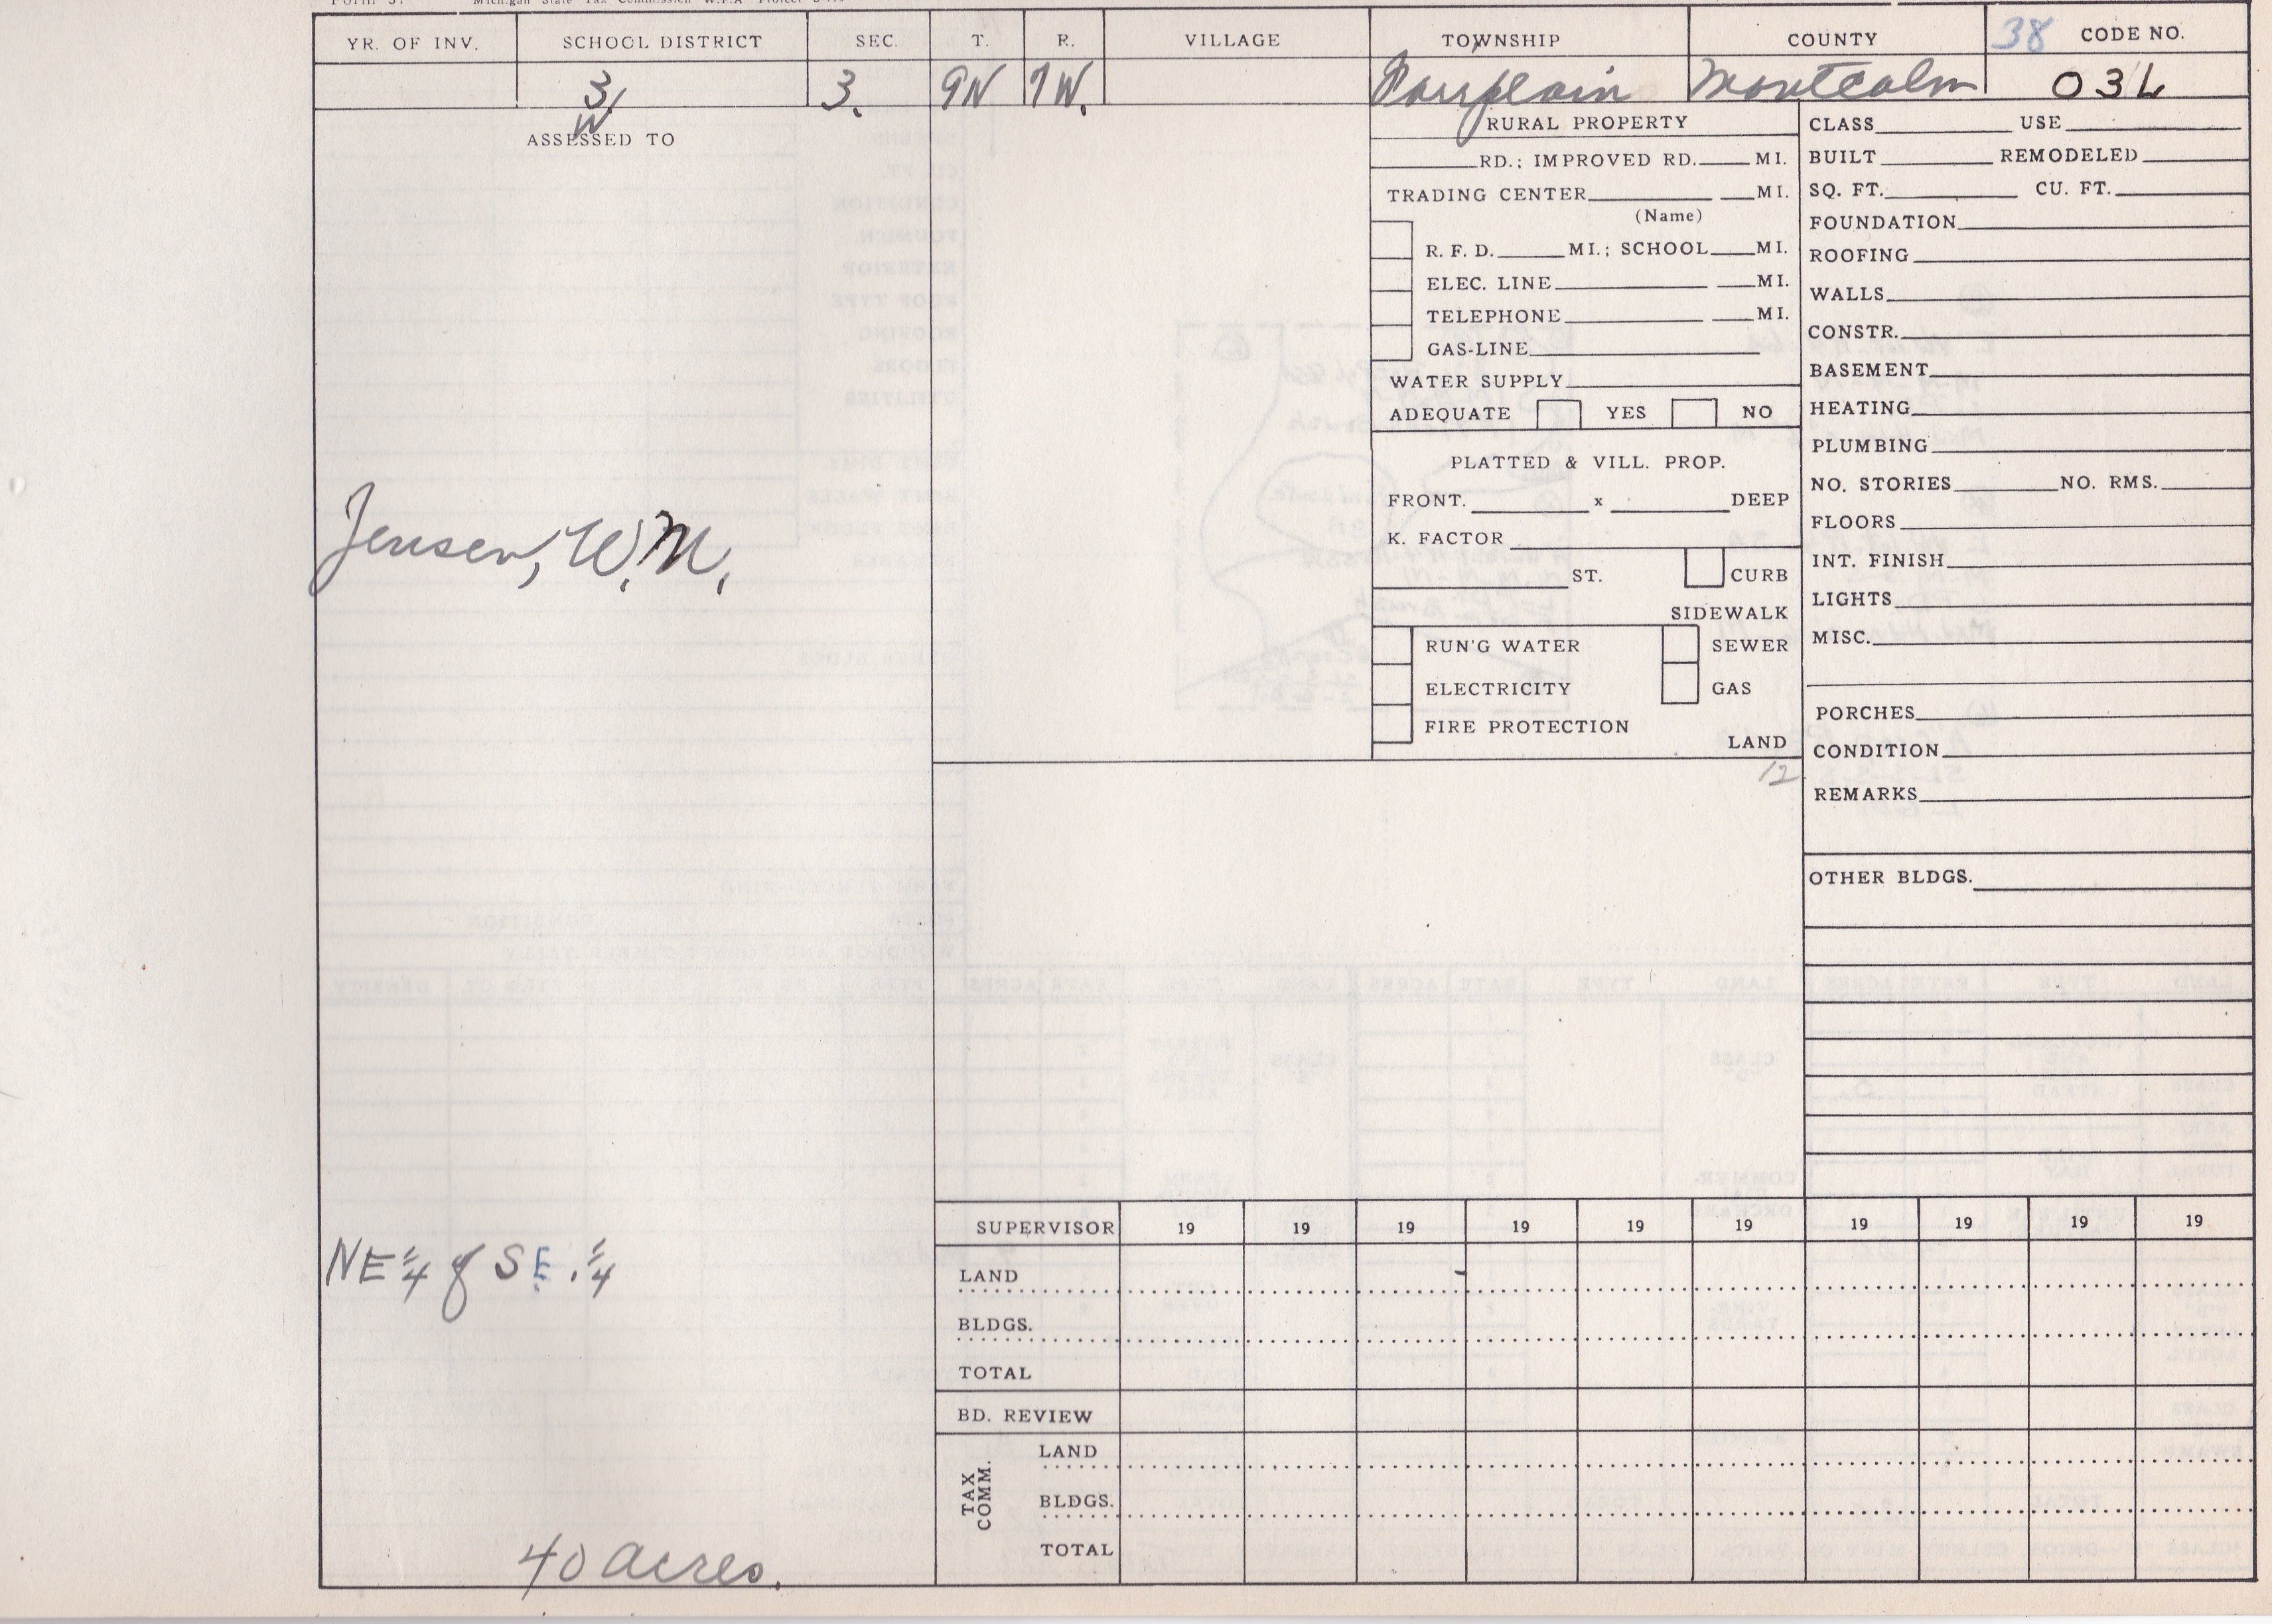 Michigan State Tax Commission W.P.A Project
YR. OF INV. SCHOOL DISTRICT SEC. T. R. VILLAGE TOWNSHIP COUNTY 38 CODE NO.
3/ 3. 9N 7W. Fairplain Montcalm 03L
W
ASSESSED TO
Jensen, W.M.
NE 1/4 of SE. 1/4
40 acres.
RURAL PROPERTY
RD.; IMPROVED RD. MI.
TRADING CENTER MI.
(Name)
R. F. D. MI.; SCHOOL MI.
ELEC. LINE MI.
TELEPHONE MI.
GAS-LINE
WATER SUPPLY
ADEQUATE YES NO
PLATTED & VILL. PROP.
FRONT. x DEEP
K. FACTOR
ST. CURB
SIDEWALK
RUN'G WATER SEWER
ELECTRICITY GAS
FIRE PROTECTION
LAND
12
CLASS USE
BUILT REMODELED
SQ. FT. CU. FT.
FOUNDATION
ROOFING
WALLS
CONSTR.
BASEMENT
HEATING
PLUMBING
NO. STORIES NO. RMS.
FLOORS
INT. FINISH
LIGHTS
MISC.
PORCHES
CONDITION
REMARKS
OTHER BLDGS.
SUPERVISOR 19 19 19 19 19 19 19 19 19 19
LAND
BLDGS.
TOTAL
BD. REVIEW
TAX COMM.
LAND
BLDGS.
TOTAL